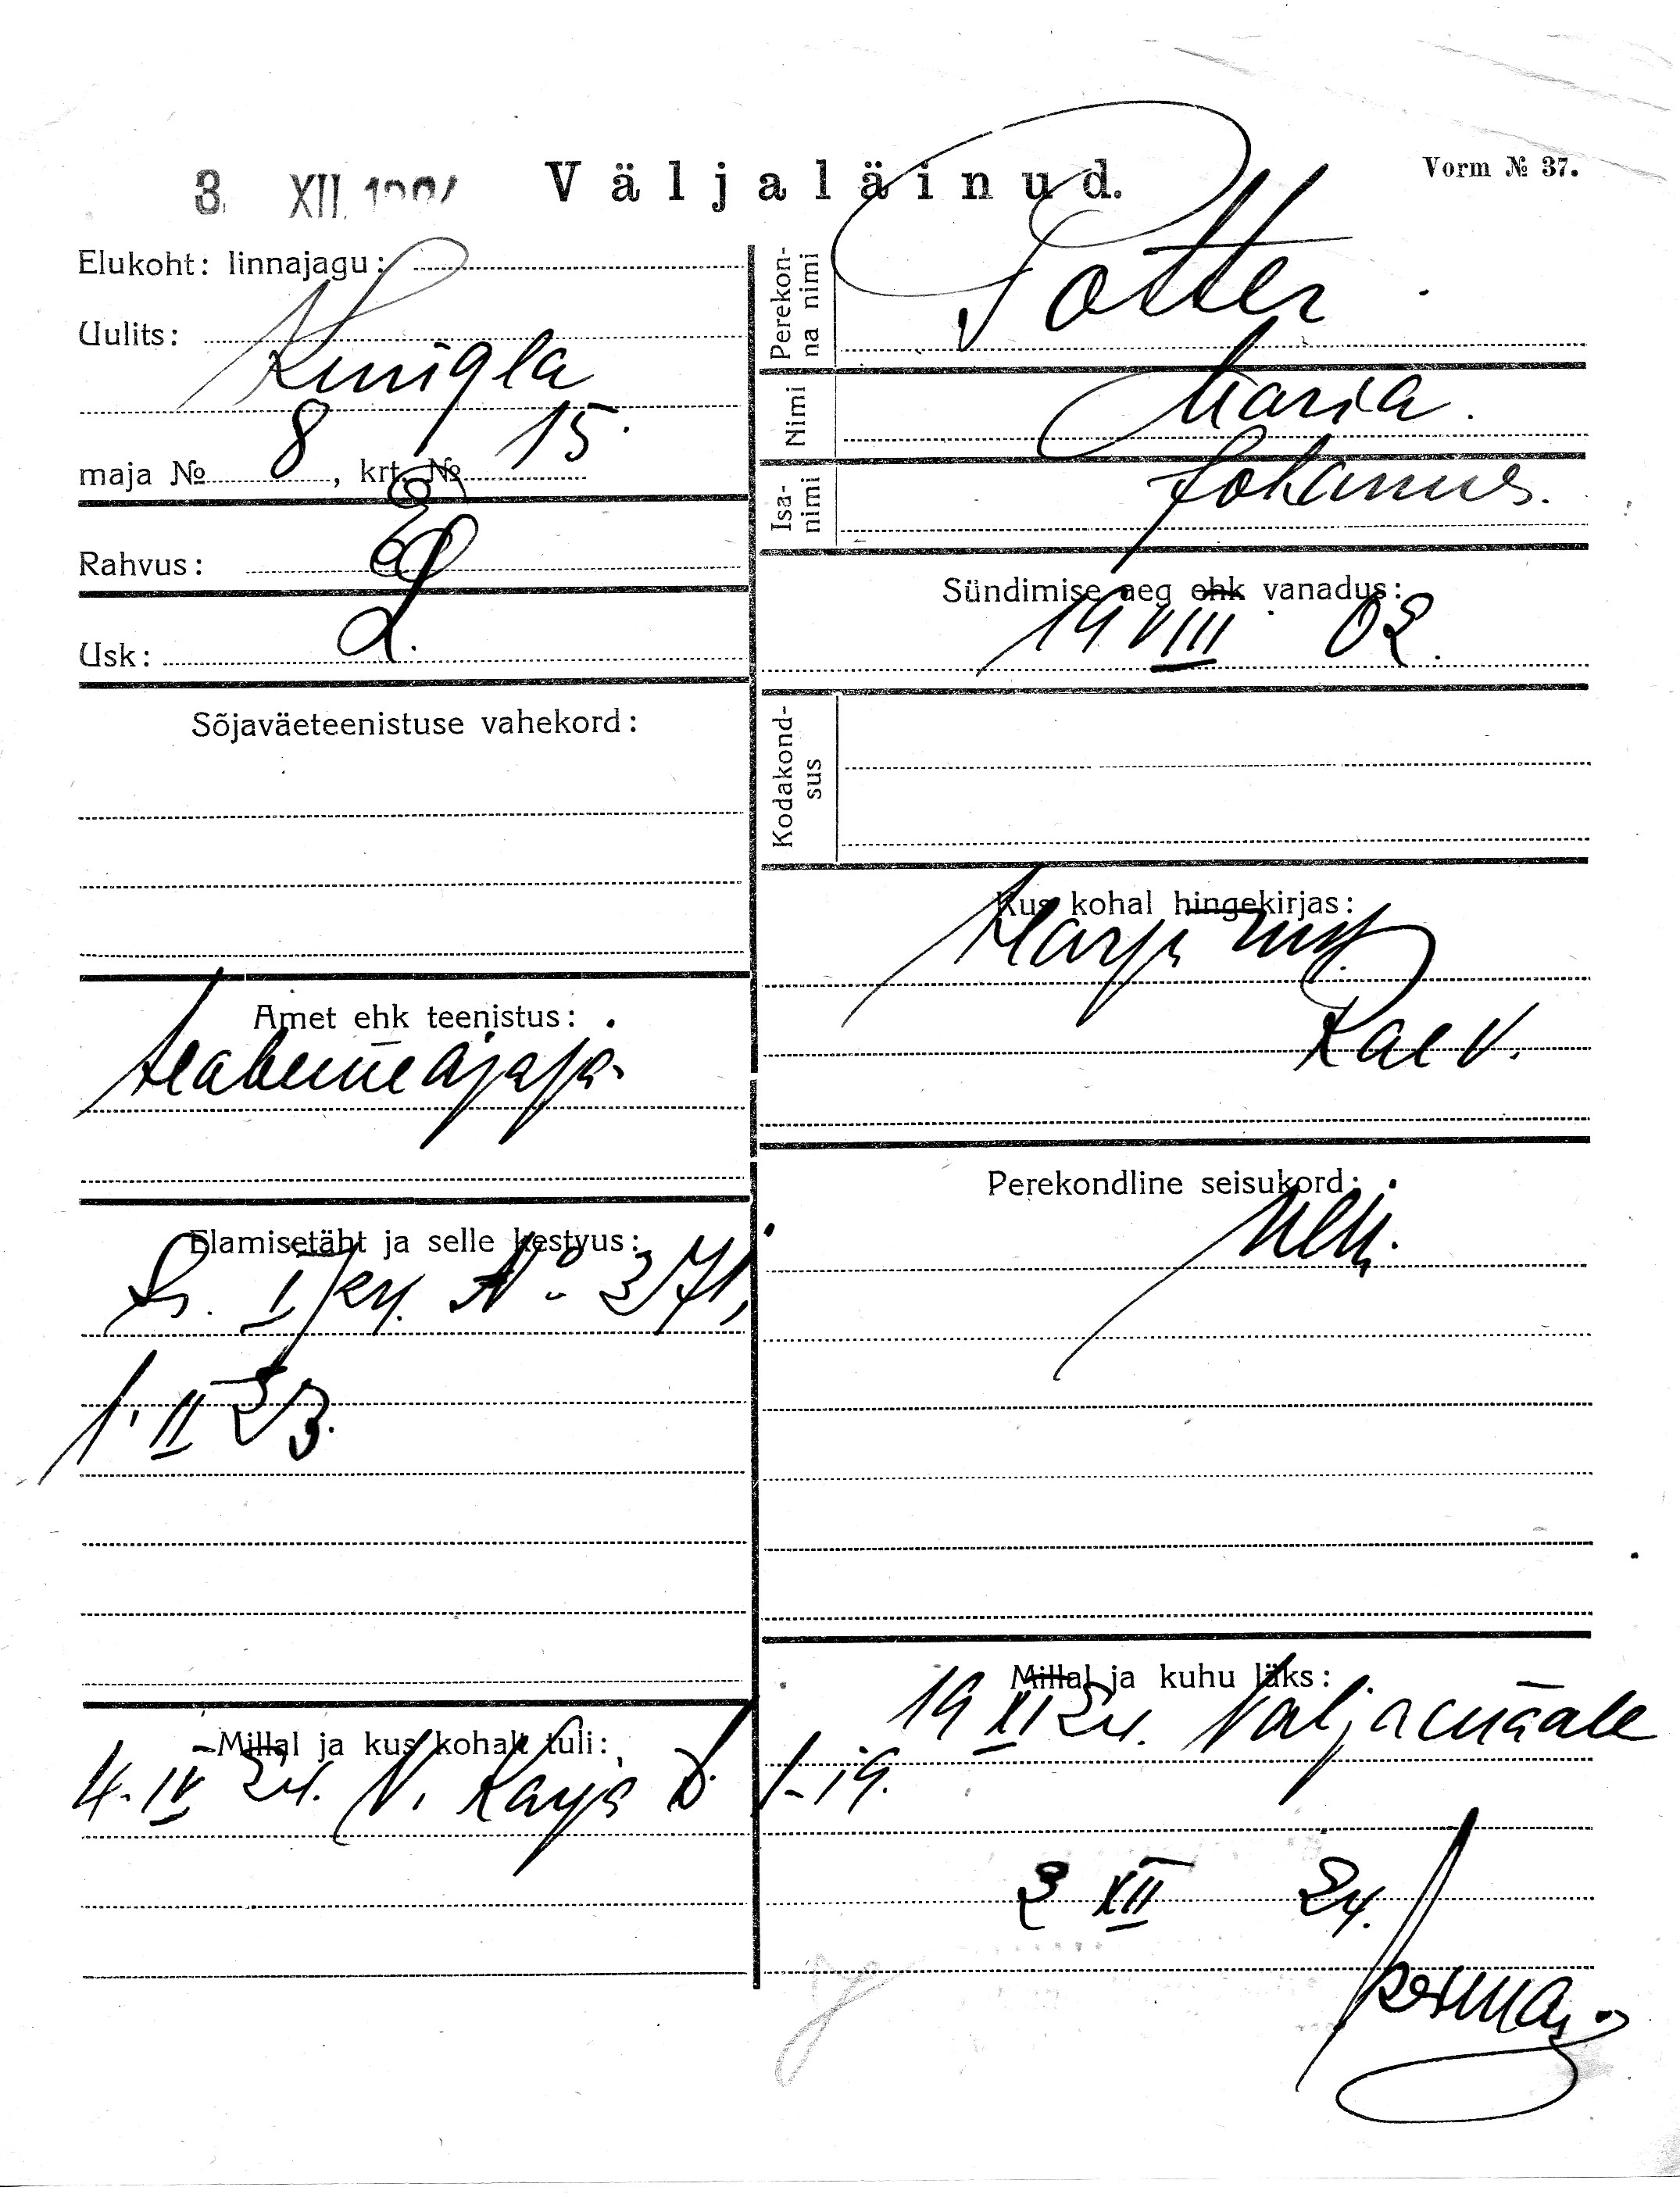 3. XII. 192
Väljaläinud.
Vorm № 37.
Elukoht: linnajagu:
Uulits:
Kunigla
maja № 8, krt. № 15.
Rahvus: E
Usk: L.
Sõjaväeteenistuse vahekord:
Amet ehk teenistus:
Elamisetäht ja selle kestvus:
I № 371,
1. II 23.
Millal ja kus kohalt tuli:
4. IV 24. V. Karja t. 1-19.
Perekonna nimi
Potter
Nimi
Maria.
Isanimi
Johannes.
Sündimise aeg ehk vanadus:
19 VIII 02.
Kodakondsus
Kus kohal hingekirjas:
Harju mk.
Rae v.
Perekondline seisukord:
Millal ja kuhu läks:
19 XI 24. Väljamaale
3 XII 24.